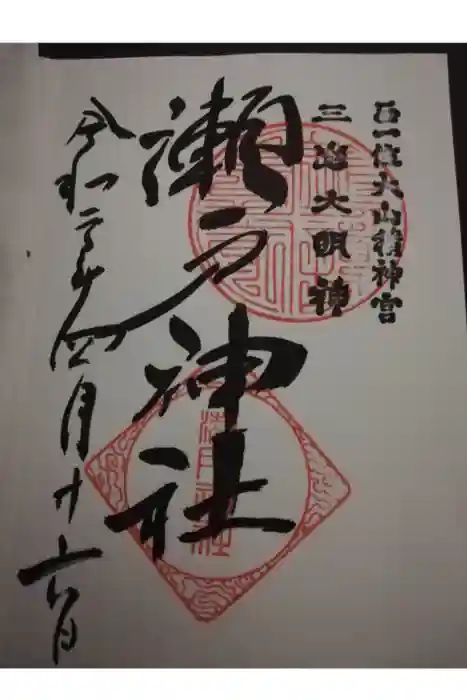 正一位大山積神宮
三島大明神
瀬戸神社
令和二年四月十六日